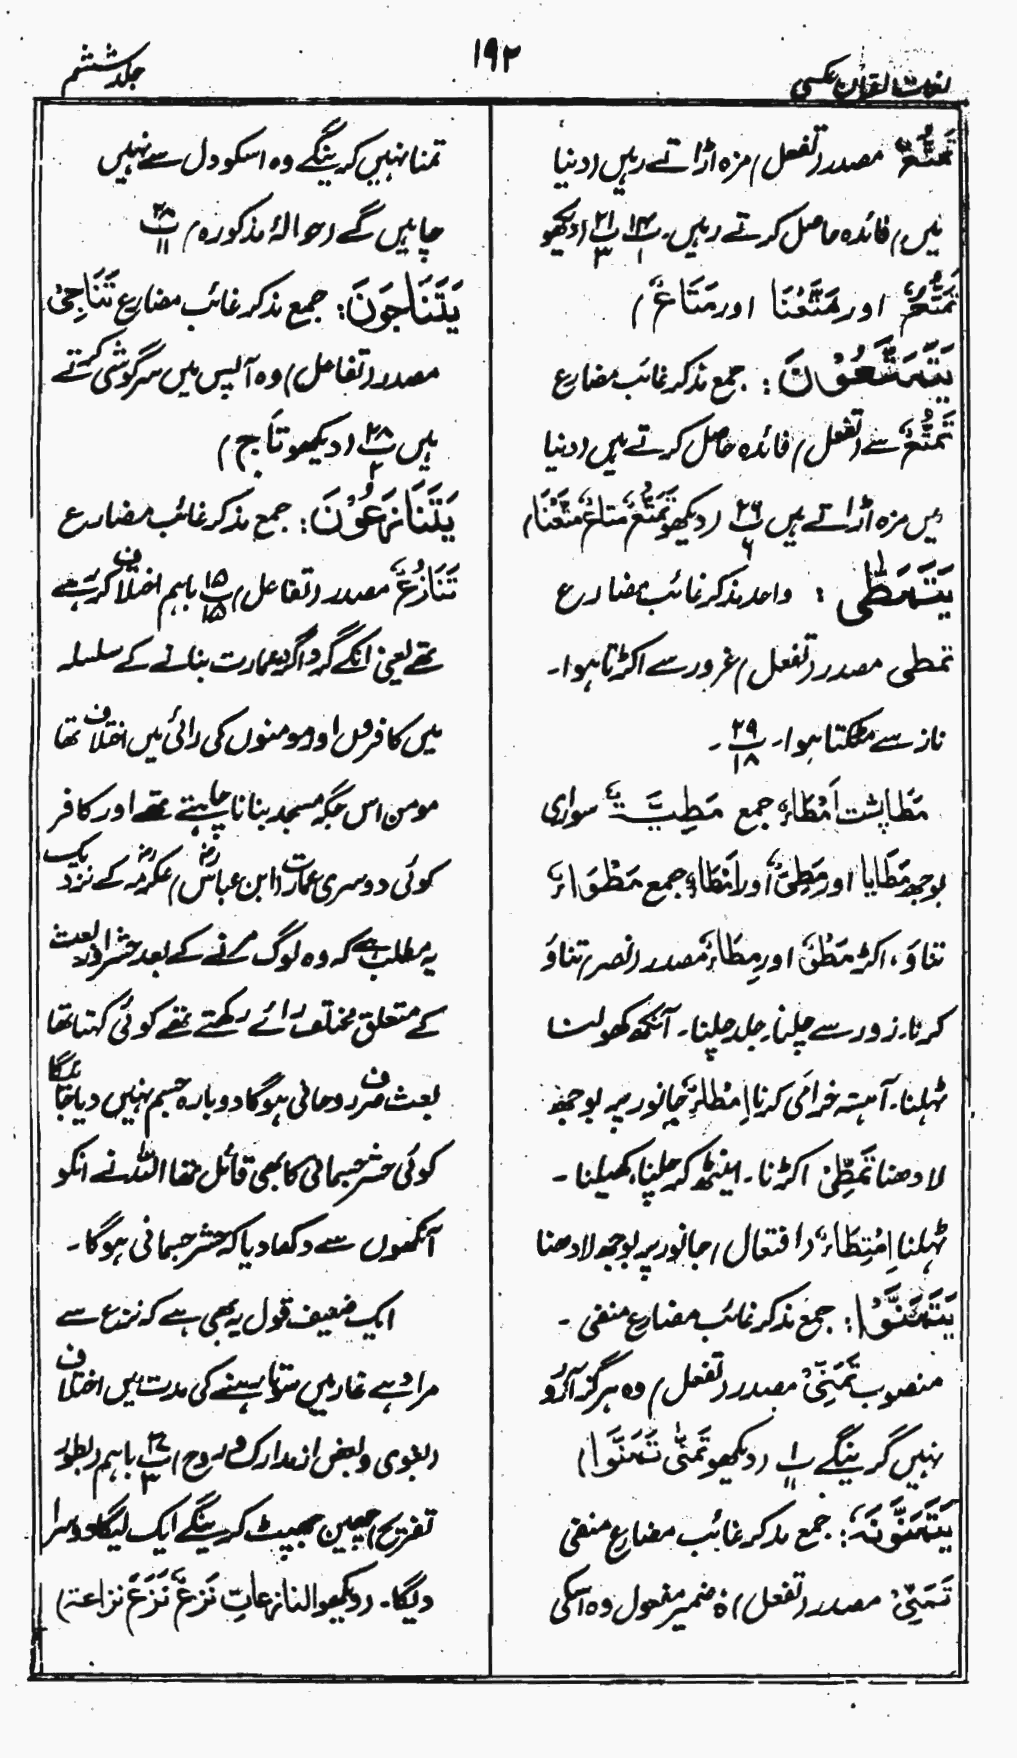 لغات القرآن عکسی
۱۹۲
جلد ششم
تَمَتُّعٌ مصدر (تفعل) مزہ اڑاتے رہیں (دنیا
میں) فائدہ حاصل کرتے رہیں۔ پ۱۴ پ۲۱ (دیکھو
تَمَتُّعٌ اور مَتَّعْنَا اور مَتَاعٌ)
يَتَمَتَّعُوْنَ: جمع مذکر غائب مضارع
تَمَتُّعٌ سے (تفعل) فائدہ حاصل کرتے ہیں (دنیا
میں مزہ اڑاتے ہیں پ۲۶ (دیکھو تَمَتُّعٌ مَتَاعٌ مَتَّعْنَا)
يَتَمَطّٰى: واحد مذکر غائب مضارع
تمطی مصدر (تفعل) غرور سے اکڑتا ہوا۔
ناز سے مٹکتا ہوا۔ پ۲۹/۱۸۔
مَطَا پشت اَمْطَاءٌ جمع مَطِيَّةٌ سواری
بوجھ مَطَايَا اور مَطِيٌّ اور اَمْطَاءٌ جمع مَطْوَاءٌ
تناؤ، اکڑ مَطْوٌ اور مِطَاءٌ مصدر (نصر) تناؤ
کرنا۔ زور سے چلنا۔ جلد چلنا۔ آنکھ کھولنا
ٹہلنا۔ آہستہ خرامی کرنا اِمْطَاءٌ جانور پر بوجھ
لادھنا تَمَطِّيْ اکڑنا۔ اینٹھ کر چلنا، کھیلنا۔
ٹہلنا اِمْتِطَاءٌ (افتعال) جانور پر بوجھ لادھنا
يَتَمَنَّوْا: جمع مذکر غائب مضارع منفی۔
منصوب تَمَنِّيْ مصدر (تفعل) وہ ہرگز آرزو
نہیں کرینگے پ۱/۱۱ (دیکھو تَمَنّٰى تَمَنَّوْا)
يَتَمَنَّوْنَهٗ: جمع مذکر غائب مضارع منفی
تَمَنِّيْ مصدر (تفعل) ہٗ ضمیر مفعول وہ اسکی
تمنا نہیں کرینگے وہ اسکو دل سے نہیں
چاہیں گے (حوالۂ مذکورہ) پ۲۸/۱۱
يَتَنَاجَوْنَ: جمع مذکر غائب مضارع تَنَاجِيْ
مصدر (تفاعل) وہ آپس میں سرگوشی کرتے
ہیں پ۲۸/۲ (دیکھو تَاج)
يَتَنَازَعُوْنَ: جمع مذکر غائب مضارع
تَنَازُعٌ مصدر (تفاعل) پ۱۵/۱۵ باہم اختلاف کر رہے
تھے یعنی انکے گرداگرد عمارت بنانے کے سلسلہ
میں کافروں اور مومنوں کی رائی میں اختلاف تھا
مومن اس جگہ مسجد بنانا چاہتے تھے اور کافر
کوئی دوسری عمارت (ابن عباس رض) عکرمہ رض کے نزدیک
یہ مطلب ہے کہ وہ لوگ مرنے کے بعد حشر اور بعث
کے متعلق مختلف رائے رکھتے تھے کوئی کہتا تھا
بعث صرف روحانی ہوگا دوبارہ جسم نہیں دیا جائیگا
کوئی حشر جسمانی کا بھی قائل تھا اللہ نے انکو
آنکھوں سے دکھا دیا کہ حشر جسمانی ہوگا۔
ایک ضعیف قول یہ بھی ہے کہ نزع سے
مراد ہے غار میں سوتا رہنے کی مدت میں اختلاف
(بغوی و بعض از مدارک و روح) پ۲۷/۳ باہم (بطور
تفریح) چھین جھپٹ کرینگے ایک لیگا دوسرا
دیگا۔ (دیکھو النازعات نَزْعٌ نَزَعَ نزاعۃ)